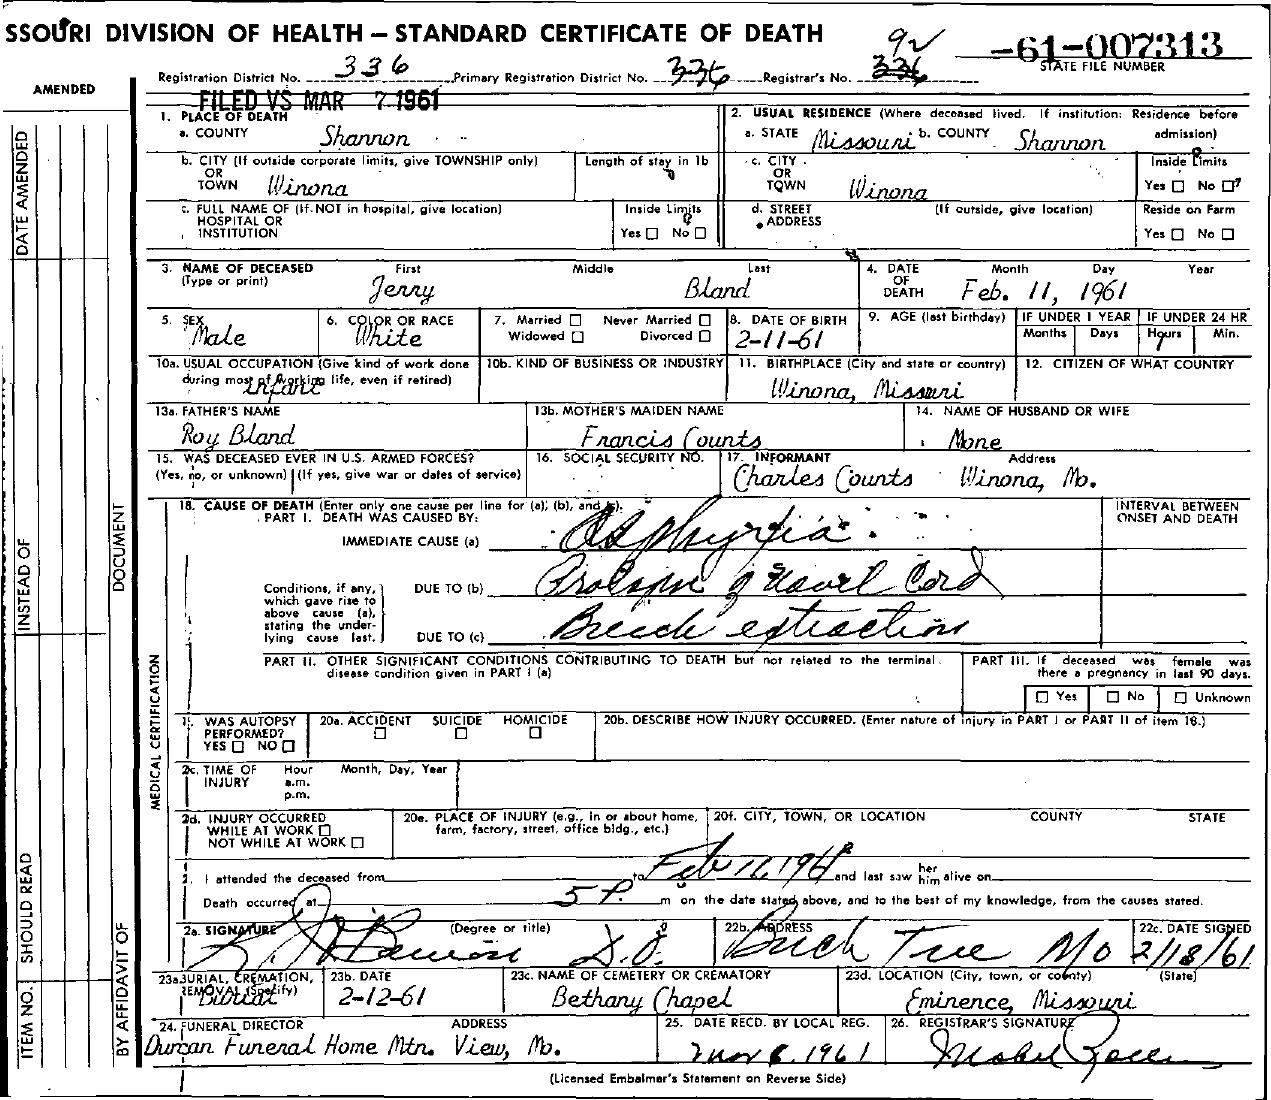 SSOURI DIVISION OF HEALTH – STANDARD CERTIFICATE OF DEATH
92 -61-007313
STATE FILE NUMBER
Registration District No. 336 Primary Registration District No. 336 Registrar's No. 336
FILED VS MAR 7 1961
AMENDED
DATE AMENDED
INSTEAD OF
DOCUMENT
SHOULD READ
ITEM NO.
BY AFFIDAVIT OF
MEDICAL CERTIFICATION
1. PLACE OF DEATH
a. COUNTY Shannon
2. USUAL RESIDENCE (Where deceased lived. If institution: Residence before admission)
a. STATE Missouri b. COUNTY Shannon
b. CITY (If outside corporate limits, give TOWNSHIP only) OR TOWN Winona
Length of stay in 1b
c. CITY OR TOWN Winona
Inside Limits
Yes ☐ No ☐
c. FULL NAME OF (If NOT in hospital, give location) HOSPITAL OR INSTITUTION
Inside Limits
Yes ☐ No ☐
d. STREET ADDRESS (If outside, give location)
Reside on Farm
Yes ☐ No ☐
3. NAME OF DECEASED (Type or print) First Middle Last
Jerry Bland
4. DATE OF DEATH Month Day Year
Feb. 11, 1961
5. SEX Male
6. COLOR OR RACE White
7. Married ☐ Never Married ☐ Widowed ☐ Divorced ☐
8. DATE OF BIRTH 2-11-61
9. AGE (last birthday)
IF UNDER 1 YEAR Months Days
IF UNDER 24 HR Hours Min.
10a. USUAL OCCUPATION (Give kind of work done during most of working life, even if retired) infant
10b. KIND OF BUSINESS OR INDUSTRY
11. BIRTHPLACE (City and state or country) Winona, Missouri
12. CITIZEN OF WHAT COUNTRY
13a. FATHER'S NAME Roy Bland
13b. MOTHER'S MAIDEN NAME Francis Counts
14. NAME OF HUSBAND OR WIFE None
15. WAS DECEASED EVER IN U.S. ARMED FORCES? (Yes, no, or unknown) (If yes, give war or dates of service)
16. SOCIAL SECURITY NO.
17. INFORMANT Address
Charles Counts Winona, Mo.
18. CAUSE OF DEATH (Enter only one cause per line for (a), (b), and (c).
PART I. DEATH WAS CAUSED BY:
INTERVAL BETWEEN ONSET AND DEATH
IMMEDIATE CAUSE (a) Asphyxia
Conditions, if any, which gave rise to above cause (a), stating the underlying cause last.
DUE TO (b) Prolapse of Navel Cord
DUE TO (c) Breech extraction
PART II. OTHER SIGNIFICANT CONDITIONS CONTRIBUTING TO DEATH but not related to the terminal disease condition given in PART I (a)
PART III. If deceased was female was there a pregnancy in last 90 days.
☐ Yes ☐ No ☐ Unknown
WAS AUTOPSY PERFORMED? YES ☐ NO ☐
20a. ACCIDENT ☐ SUICIDE ☐ HOMICIDE ☐
20b. DESCRIBE HOW INJURY OCCURRED. (Enter nature of injury in PART I or PART II of item 18.)
2c. TIME OF INJURY Hour a.m. p.m. Month, Day, Year
2d. INJURY OCCURRED WHILE AT WORK ☐ NOT WHILE AT WORK ☐
20e. PLACE OF INJURY (e.g., in or about home, farm, factory, street, office bldg., etc.)
20f. CITY, TOWN, OR LOCATION COUNTY STATE
I attended the deceased from to Feb 11, 1961 and last saw her him alive on
Death occurred at 5 P. m on the date stated above, and to the best of my knowledge, from the causes stated.
2a. SIGNATURE (Degree or title) D.O.
22b. ADDRESS Birch Tree Mo
22c. DATE SIGNED 2/18/61
23a. BURIAL, CREMATION, REMOVAL (Specify) Burial
23b. DATE 2-12-61
23c. NAME OF CEMETERY OR CREMATORY Bethany Chapel
23d. LOCATION (City, town, or county) (State) Eminence, Missouri
24. FUNERAL DIRECTOR ADDRESS
Duncan Funeral Home Mtn. View, Mo.
25. DATE RECD. BY LOCAL REG. Mar 6, 1961
26. REGISTRAR'S SIGNATURE Mabel
(Licensed Embalmer's Statement on Reverse Side)